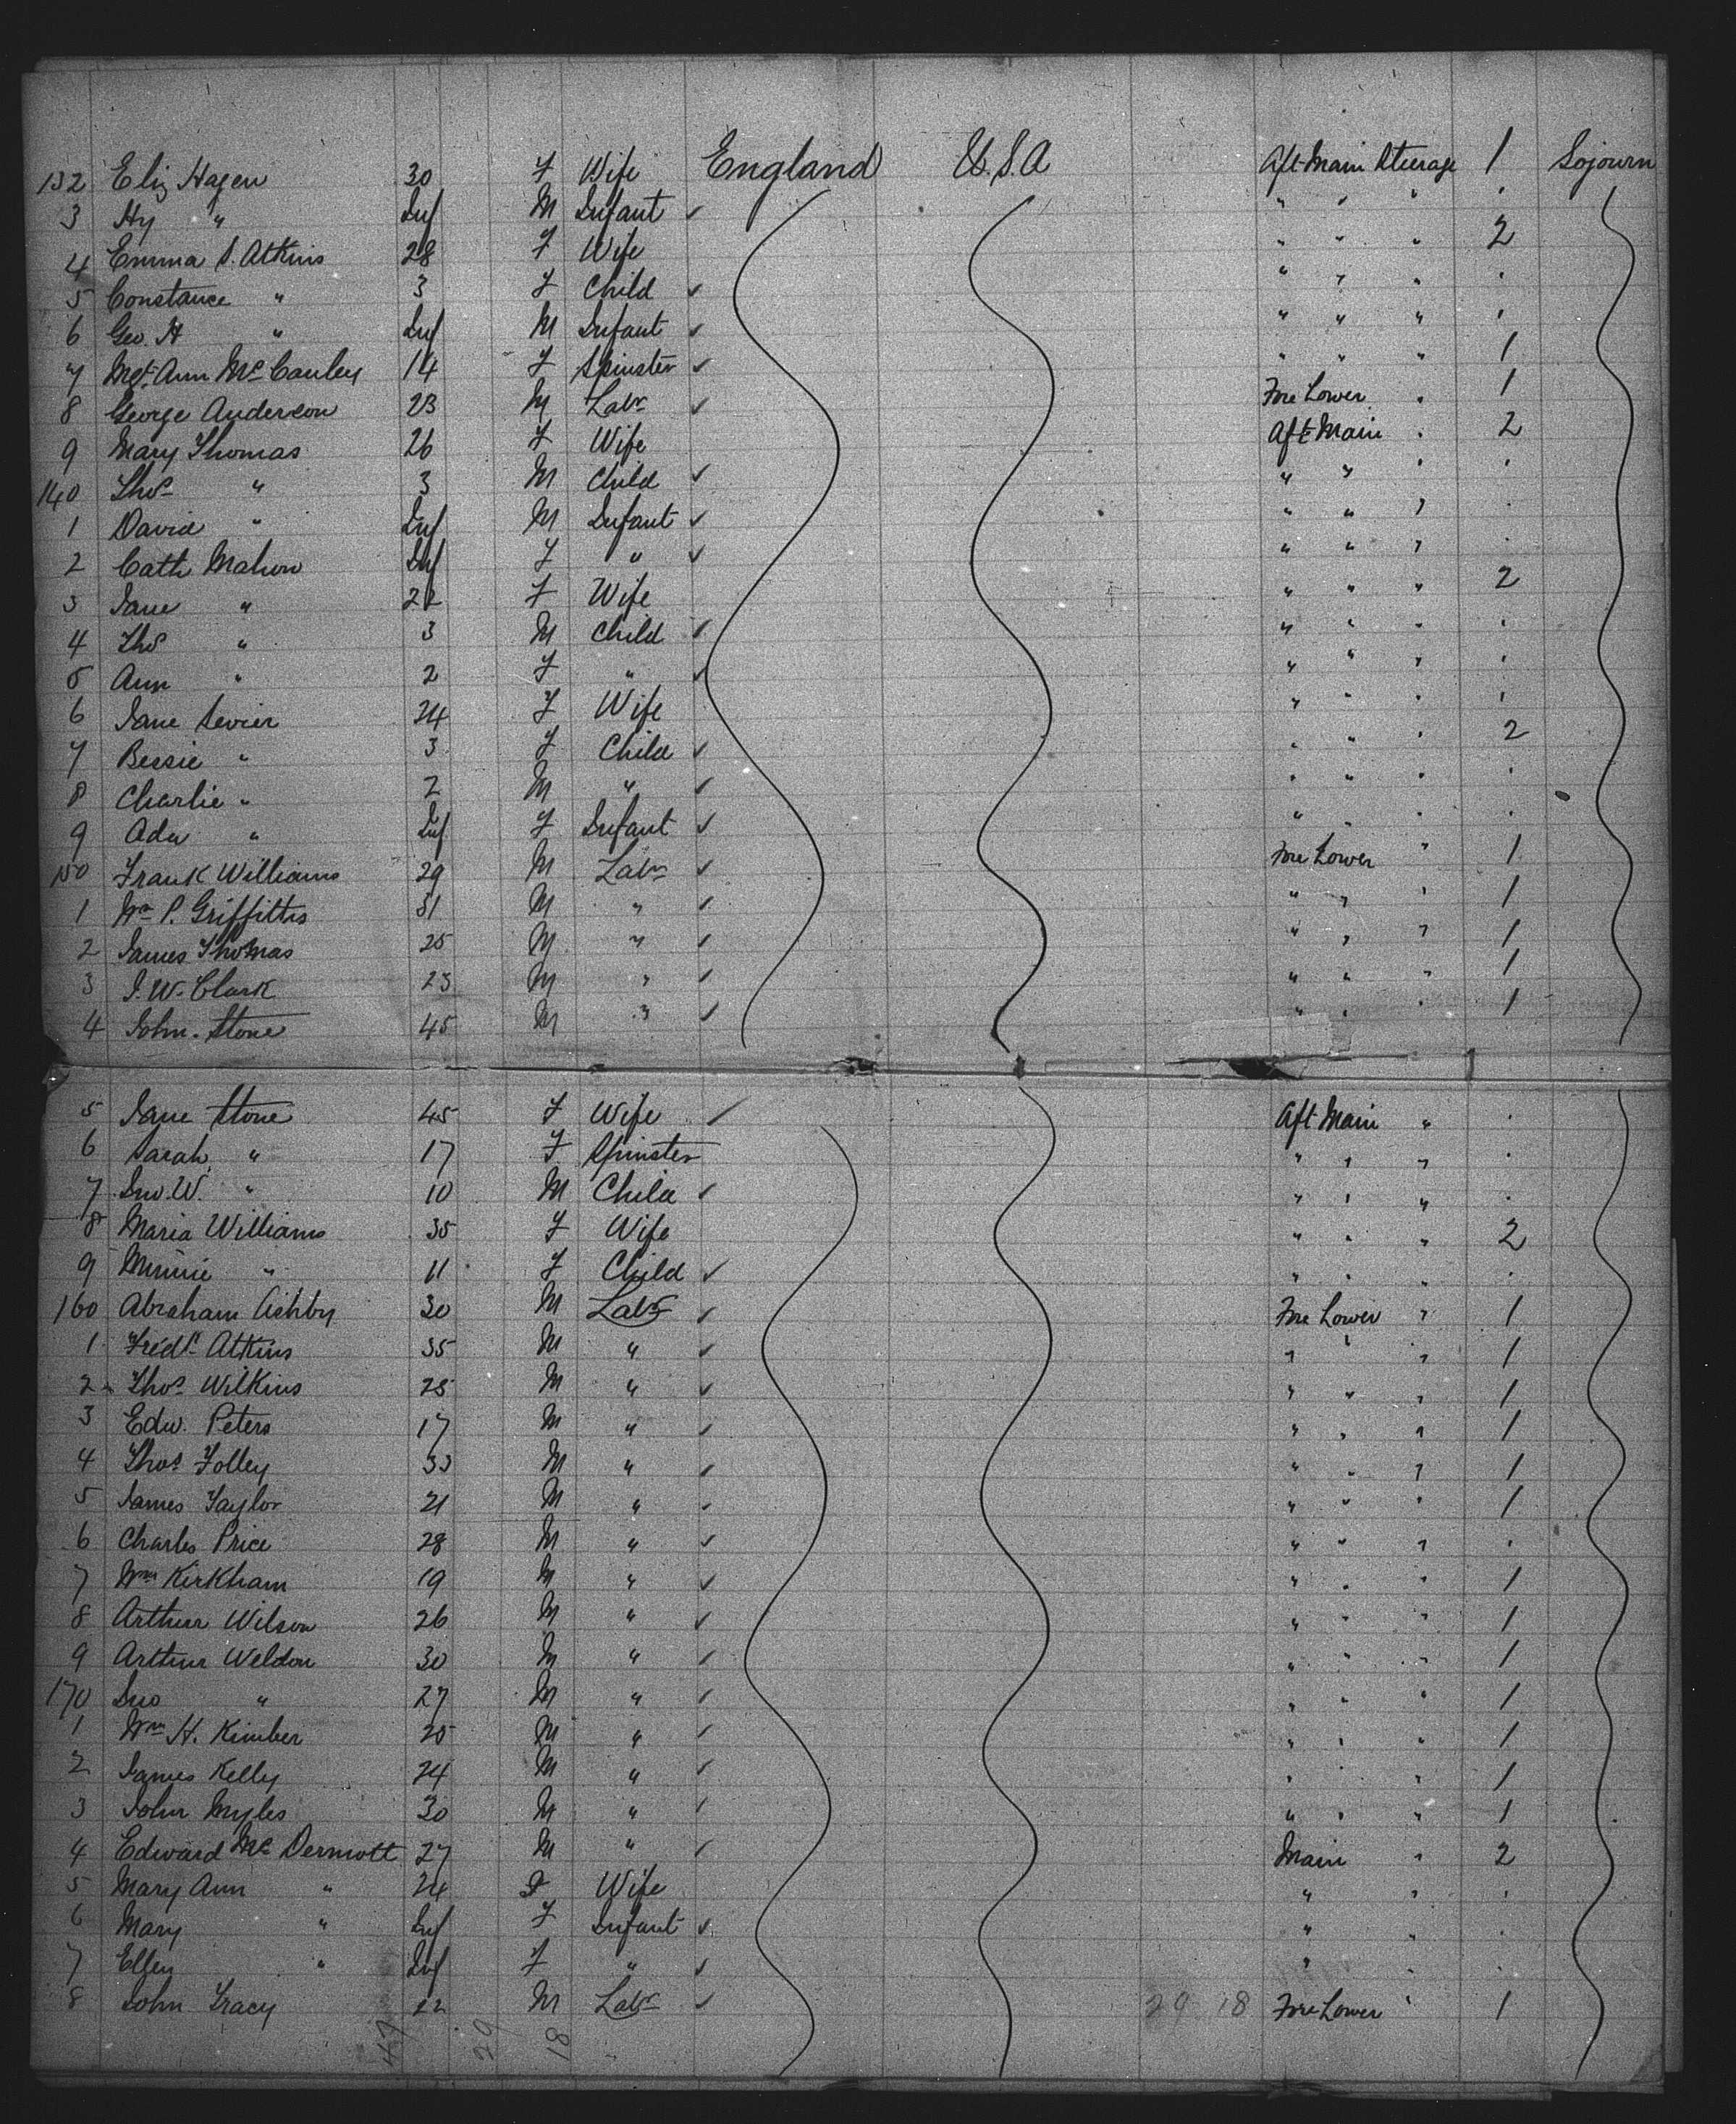 132 Eliz Hagen 30 F Wife England U.S.A Aft Main Steerage 1 Sojourn
3 Hy " Inf M Infant ✓ " " " "
4 Emma S. Atkins 28 F Wife " " " 2
5 Constance " 3 F Child ✓ " " " "
6 Geo. H " Inf M Infant ✓ " " " "
7 Mgt. Ann McCauley 14 F Spinster ✓ " " " 1
8 George Anderson 23 M Labr ✓ Fore Lower " 1
9 Mary Thomas 26 F Wife Aft Main " 2
140 Thos " 3 M Child ✓ " " " "
1 David " Inf M Infant ✓ " " " "
2 Cath Mahon Inf F " ✓ " " " "
3 Jane " 22 F Wife " " " 2
4 Thos " 3 M Child ✓ " " " "
5 Ann " 2 F " ✓ " " " "
6 Jane Sevier 24 F Wife " " " "
7 Bessie " 3 F Child ✓ " " " 2
8 Charlie " 2 M " ✓ " " " "
9 Ada " Inf F Infant ✓ " " " "
150 Frank Williams 29 M Labr ✓ Fore Lower " 1
1 Wm P. Griffiths 31 M " ✓ " " " 1
2 James Thomas 25 M " ✓ " " " 1
3 J. W. Clark 23 M " ✓ " " " 1
4 John Stone 45 M " ✓ " " " 1
5 Jane Stone 45 F Wife ✓ Aft Main " "
6 Sarah " 17 F Spinster " " " "
7 Jno. W. " 10 M Child ✓ " " " "
8 Maria Williams 35 F Wife " " " 2
9 Minnie " 11 F Child ✓ " " " "
160 Abraham Ashby 30 M Labr ✓ Fore Lower " 1
1 Fredk Atkins 35 M " ✓ " " " 1
2 Thos Wilkins 25 M " ✓ " " " 1
3 Edw. Peters 17 M " ✓ " " " 1
4 Thos Folley 33 M " ✓ " " " 1
5 James Taylor 21 M " ✓ " " " 1
6 Charles Price 28 M " ✓ " " " "
7 Wm Kirkham 19 M " ✓ " " " 1
8 Arthur Wilson 26 M " ✓ " " " 1
9 Arthur Weldon 30 M " ✓ " " " 1
170 Jno " 27 M " ✓ " " " 1
1 Wm H. Kimber 25 M " ✓ " " " 1
2 James Kelly 24 M " ✓ " " " 1
3 John Myles 30 M " ✓ " " " 1
4 Edward McDermott 27 M " ✓ Main " 2
5 Mary Ann " 24 F Wife " " "
6 Mary " Inf F Infant ✓ " " "
7 Ellen " Inf F " ✓ " " "
8 John Tracy 22 M Labr ✓ 29 18 Fore Lower " 1
47 29 18